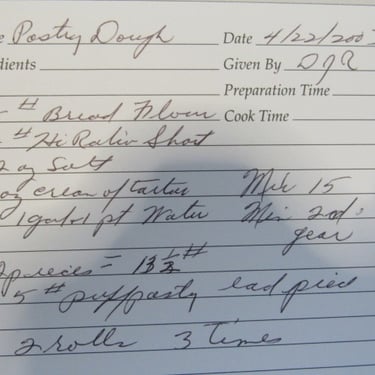 e Pastry Dough Date 4/22/200
dients Given By DJR
Preparation Time
- # Bread Flour Cook Time
- # Hi Ratio Short
2 oz Salt
oz cream of tartar Mix 15
1 gal + 1 pt Water Min 2nd
gear
2 pieces = 13 1/2 #
5 # puff pastry ead piece
2 rolls 3 times